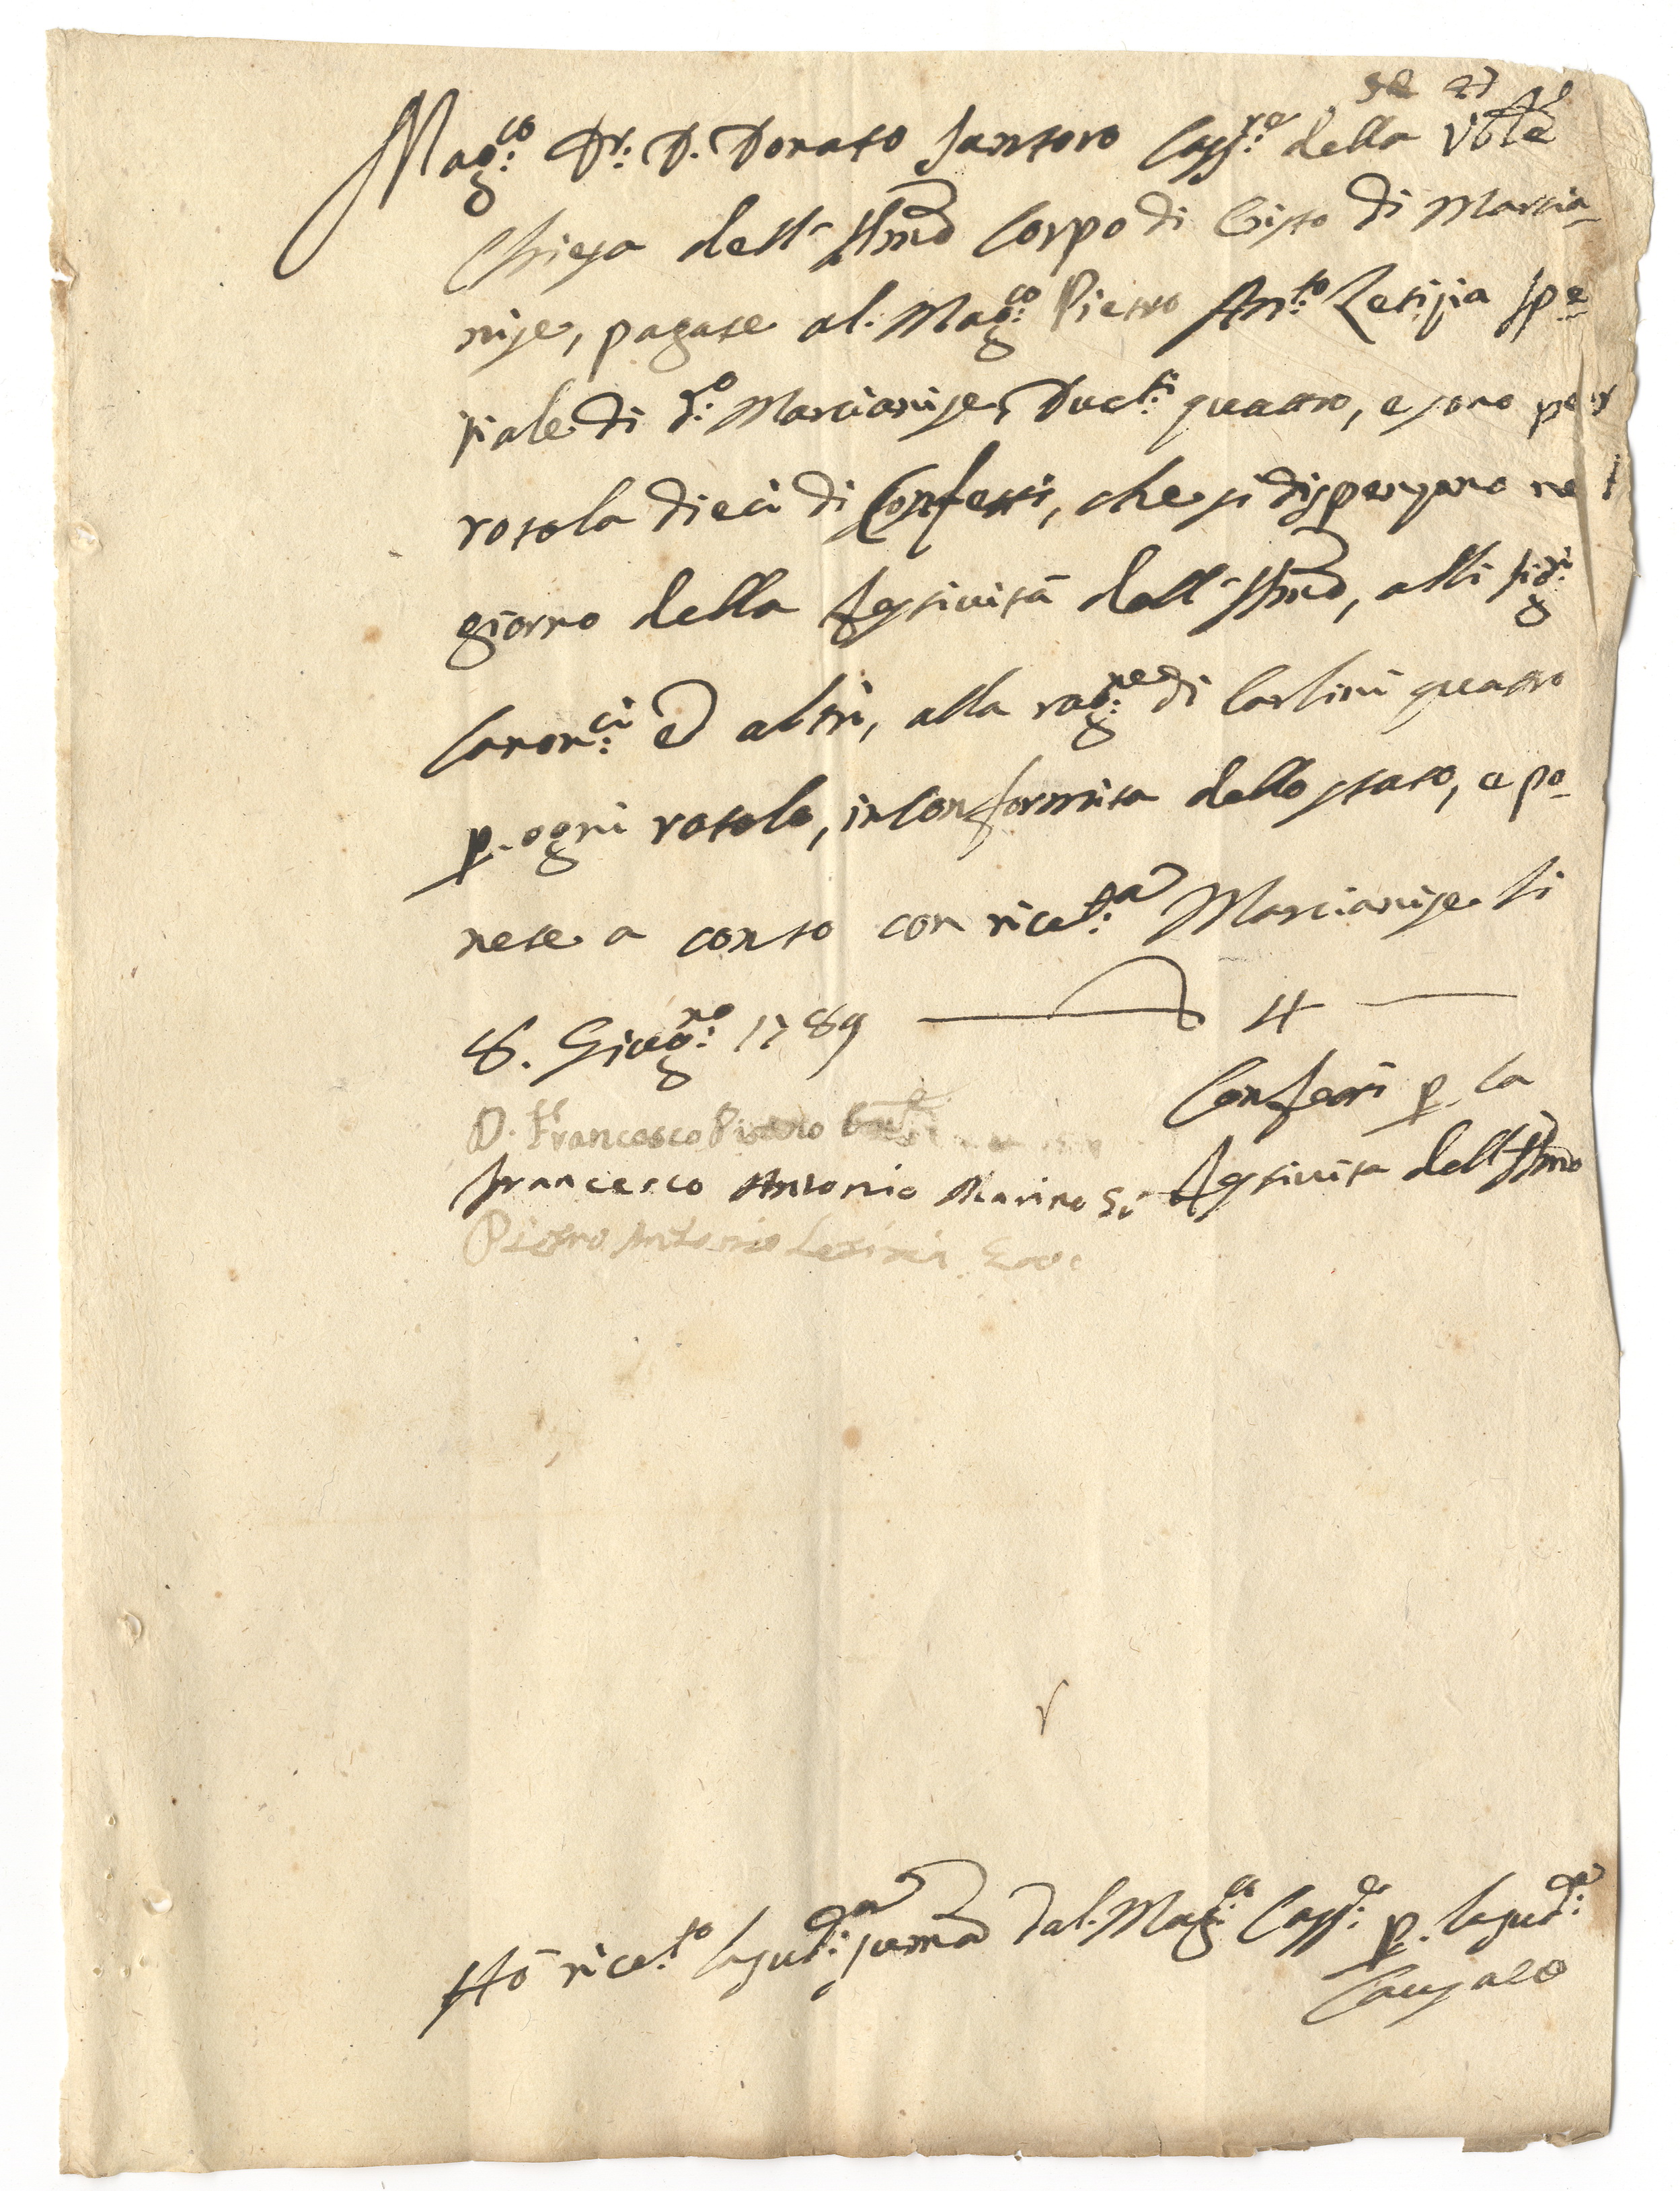 Mag:co Dr: D. Donato Santoro Cass:re della Ven:le
Chiesa dell' SSmo Corpo di Cristo di Marcia-
nise, pagate al Mag:co Pietro Ant:o Letizia Spe-
ziale di d:o Marcianise, Duc:ti quattro, e sono per
rotola dieci di Confetti, che si dispenzano nel
giorno della Festività dell' SSmo, alli Sig:ri
Canon:ci ed altri, alla rag:ne di Carlini quattro
p. ogni rotolo, in conformità dello stato, e po-
nete a conto con ricet:a Marcianise li
8. Giug:no 1789 4
D. Francesco
Confetti p. la
Francesco Antonio Marino
Festività dell' SSmo
Pietro Antonio Letizia
Hò ricet:to la sud:a summa dal Mag:co Cass:re p. la sud:a
Causale